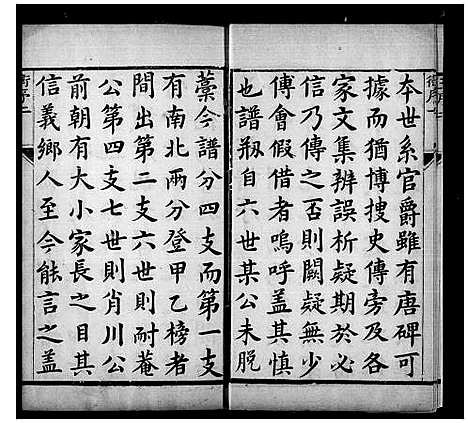 本世系官爵雖有唐碑可
據而猶博搜史傳旁及各
家文集辨誤析疑期於必
信乃傳之否則闕疑無少
傅會假借者嗚呼蓋其慎
也譜剏自六世某公未脫
藁今譜分四支而第一支
有南北兩分登甲乙榜者
間出第二支六世則耐菴
公第四支七世則肖川公
前朝有大小家長之目其
信義鄉人至今能言之蓋